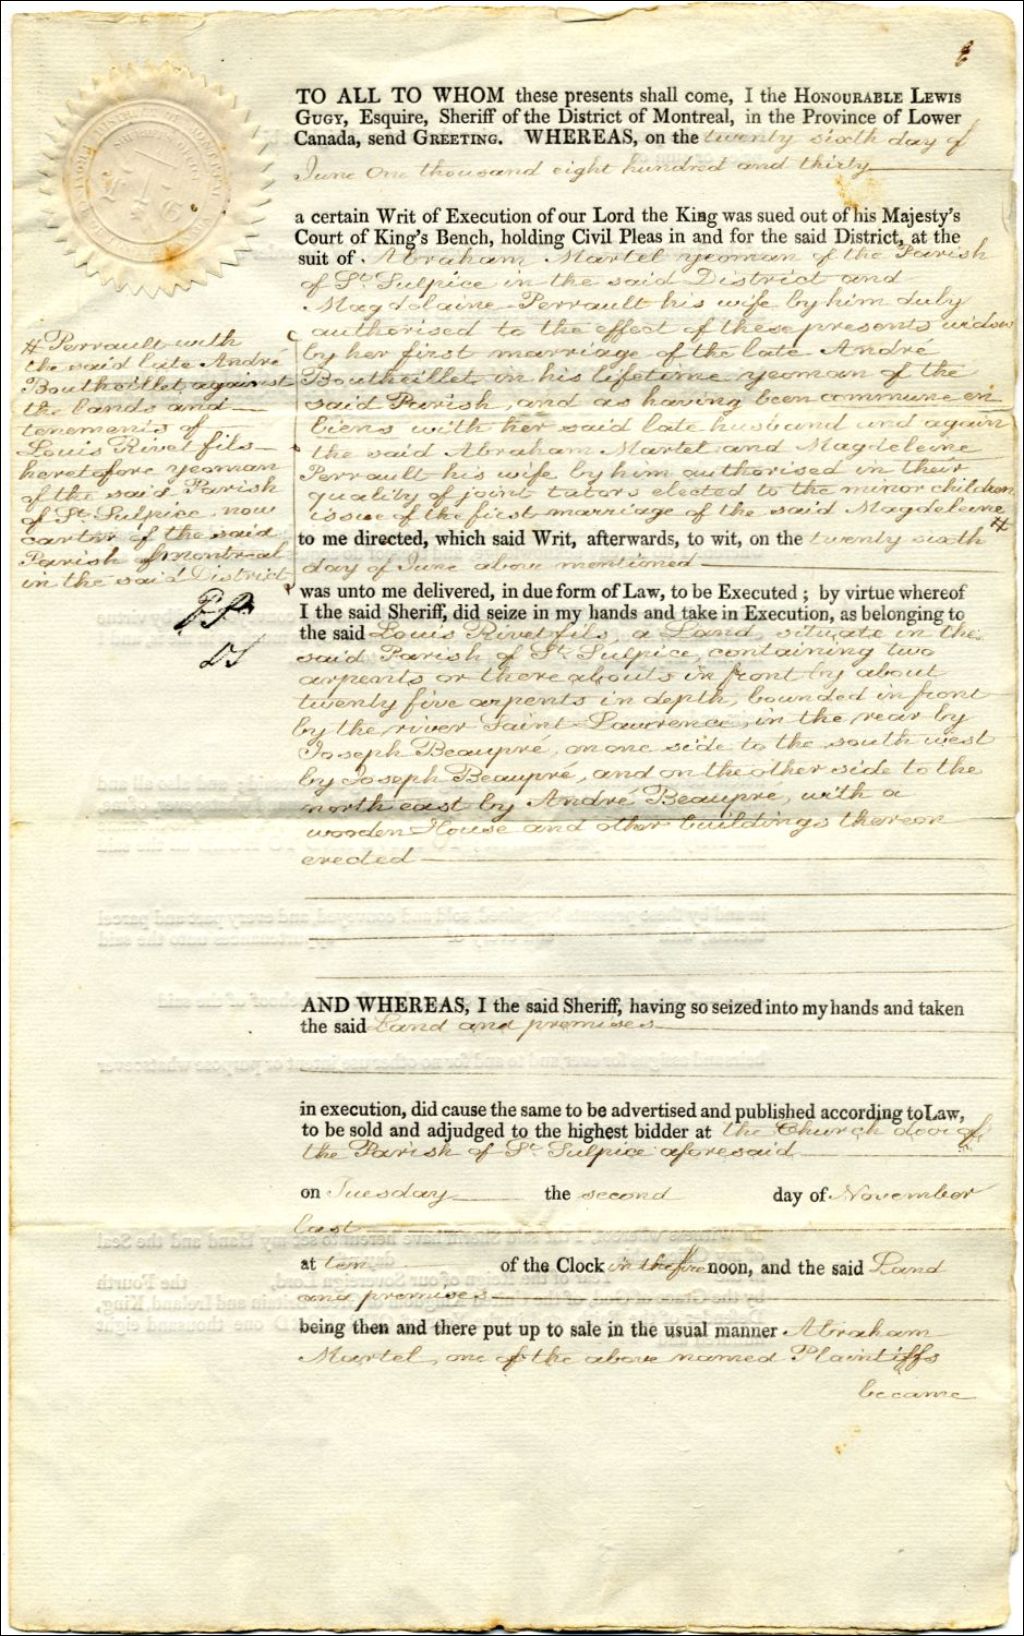 TO ALL TO WHOM these presents shall come, I the HONOURABLE LEWIS
GUGY, Esquire, Sheriff of the District of Montreal, in the Province of Lower
Canada, send GREETING. WHEREAS, on the twenty sixth day of
June One thousand eight hundred and thirty
a certain Writ of Execution of our Lord the King was sued out of his Majesty's
Court of King's Bench, holding Civil Pleas in and for the said District, at the
suit of Abraham Martel yeoman of the Parish
of St. Sulpice in the said District and
Magdelaine Perrault his wife by him duly
authorised to the effect of these presents widow
by her first marriage of the late André
Boutheillet in his lifetime yeoman of the
said Parish, and as having been commune en
biens with her said late husband and again
the said Abraham Martel and Magdeleine
Perrault his wife by him authorised in their
quality of joint tutors elected to the minor children
issue of the first marriage of the said Magdeleine #
# Perrault with
the said late André
Boutheillet against
the lands and
tenements of
Louis Rivet fils
heretofore yeoman
of the said Parish
of St. Sulpice now
carter of the said
Parish of Montreal
in the said District
to me directed, which said Writ, afterwards, to wit, on the twenty sixth
day of June above mentioned
was unto me delivered, in due form of Law, to be Executed; by virtue whereof
I the said Sheriff, did seize in my hands and take in Execution, as belonging to
the said Louis Rivet fils, a Land situate in the
said Parish of St. Sulpice, containing two
arpents or thereabouts in front by about
twenty five arpents in depth, bounded in front
by the river Saint Lawrence, in the rear by
Joseph Beaupré, on one side to the south west
by Joseph Beaupré, and on the other side to the
north east by André Beaupre, with a
wooden House and other buildings thereon
erected
AND WHEREAS, I the said Sheriff, having so seized into my hands and taken
the said Land and premises
in execution, did cause the same to be advertised and published according to Law,
to be sold and adjudged to the highest bidder at the Church door of
the Parish of St. Sulpice aforesaid
on Tuesday the second day of November
last
at ten of the Clock in the fore noon, and the said Land
and premises
being then and there put up to sale in the usual manner Abraham
Martel, one of the above named Plaintiffs
became